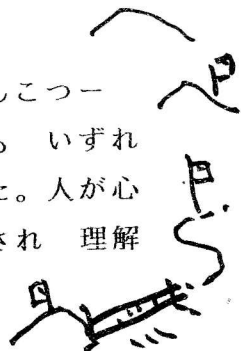 んこつー
いずれ
た。人が心
され 理解